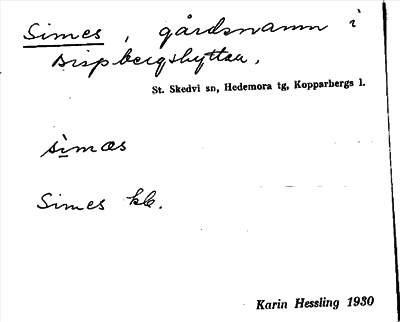 Simes, gårdsnamn i
Bispbergshyttan,
St. Skedvi sn, Hedemora tg, Kopparbergs l.
sìmæs
Simes kb.
Karin Hessling 1930